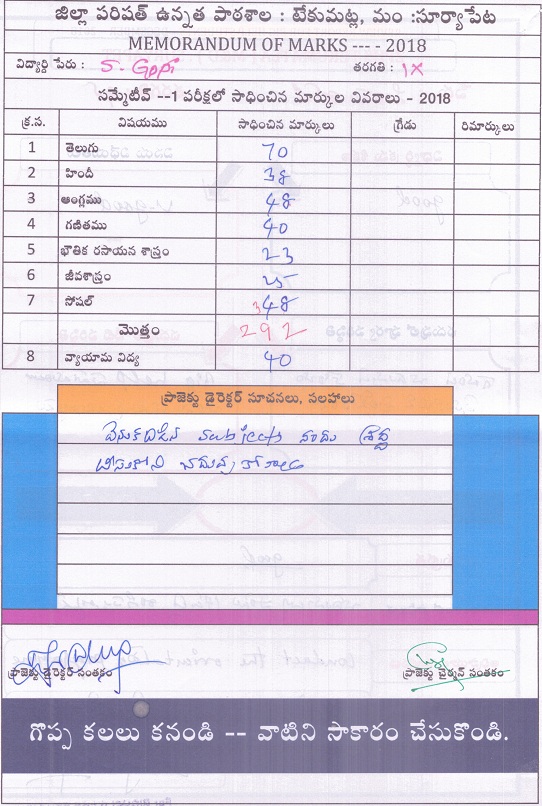 జిల్లా పరిషత్ ఉన్నత పాఠశాల : టేకుమట్ల, మం :సూర్యాపేట
MEMORANDUM OF MARKS --- - 2018
విద్యార్ది పేరు : S. Gopi తరగతి : IX
సమ్మేటీవ్ --1 పరీక్షలో సాధించిన మార్కుల వివరాలు - 2018
క్ర.స. విషయము సాధించిన మార్కులు గ్రేడు రిమార్కులు
1 తెలుగు 70
2 హిందీ 38
3 ఆంగ్లము 48
4 గణితము 40
5 భౌతిక రసాయన శాస్త్రం 23
6 జీవశాస్త్రం 25
7 సోషల్ 48
మొత్తం 292
8 వ్యాయామ విద్య 40
ప్రాజెక్టు డైరెక్టర్ సూచనలు, సలహాలు
వెనుకబడిన subjects శ్రద్ద
తీసుకొని
ప్రాజెక్టు డైరెక్టర్ సంతకం ప్రాజెక్టు చైర్మన్ సంతకం
గొప్ప కలలు కనండి -- వాటిని సాకారం చేసుకొండి.